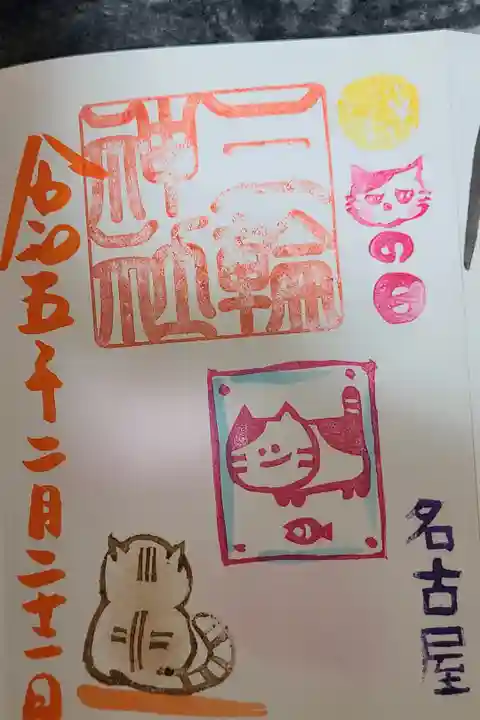 名古屋
三輪
神社
令和五年二月二十一日